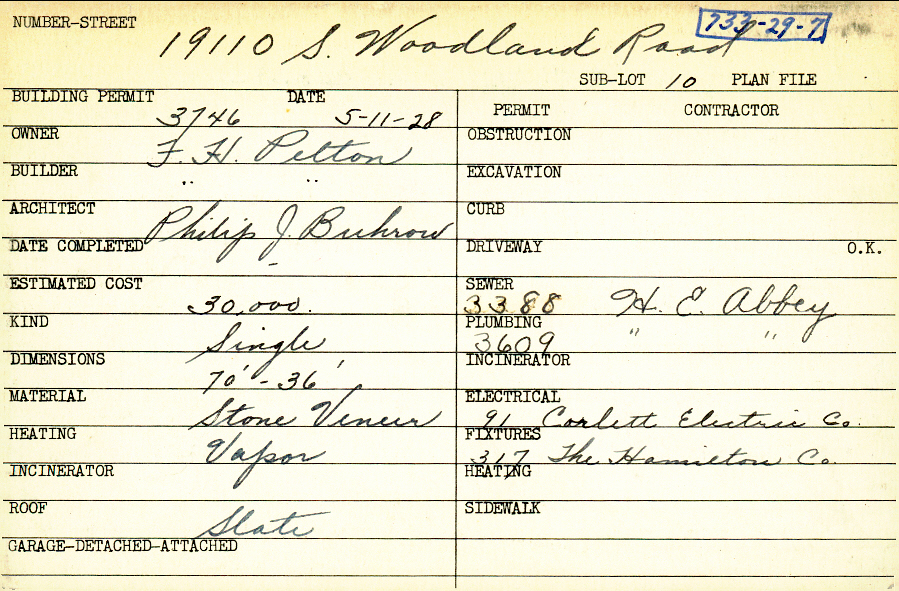 NUMBER-STREET
19110 S. Woodland Road
733-29-7
SUB-LOT 10 PLAN FILE
BUILDING PERMIT 3746 DATE 5-11-28
OWNER F. H. Pelton
BUILDER " "
ARCHITECT Philip J. Buhrow
DATE COMPLETED -
ESTIMATED COST 30,000.
KIND Single
DIMENSIONS 70' - 36'
MATERIAL Stone Veneer
HEATING Vapor
INCINERATOR
ROOF Slate
GARAGE-DETACHED-ATTACHED
PERMIT CONTRACTOR
OBSTRUCTION
EXCAVATION
CURB
DRIVEWAY O.K.
SEWER 3388 H. E. Abbey
PLUMBING 3609 " "
INCINERATOR
ELECTRICAL 91 Corlett Electric Co.
FIXTURES 317 The Hamilton Co.
HEATING
SIDEWALK